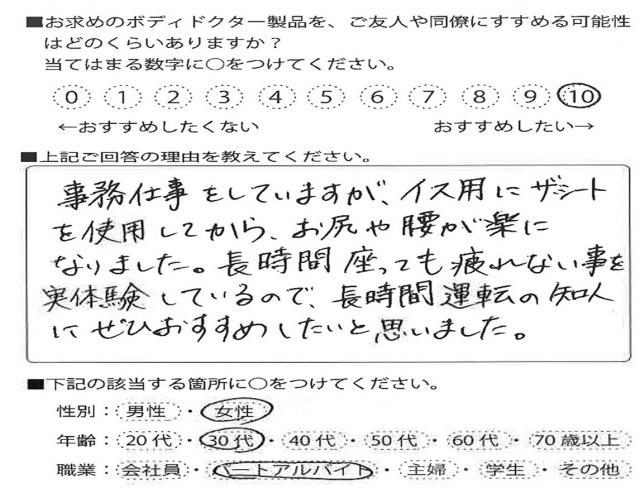 ■お求めのボディドクター製品を、ご友人や同僚にすすめる可能性
はどのくらいありますか？
当てはまる数字に○をつけてください。
0 1 2 3 4 5 6 7 8 9 10
←おすすめしたくない おすすめしたい→
■上記ご回答の理由を教えてください。
事務仕事をしていますが、イス用にザ・シート
を使用してから、お尻や腰が楽に
なりました。長時間座っても疲れない事を
実体験しているので、長時間運転の知人
にぜひおすすめしたいと思いました。
■下記の該当する箇所に○をつけてください。
性別：男性・女性
年齢：20代・30代・40代・50代・60代・70歳以上
職業：会社員・パートアルバイト・主婦・学生・その他